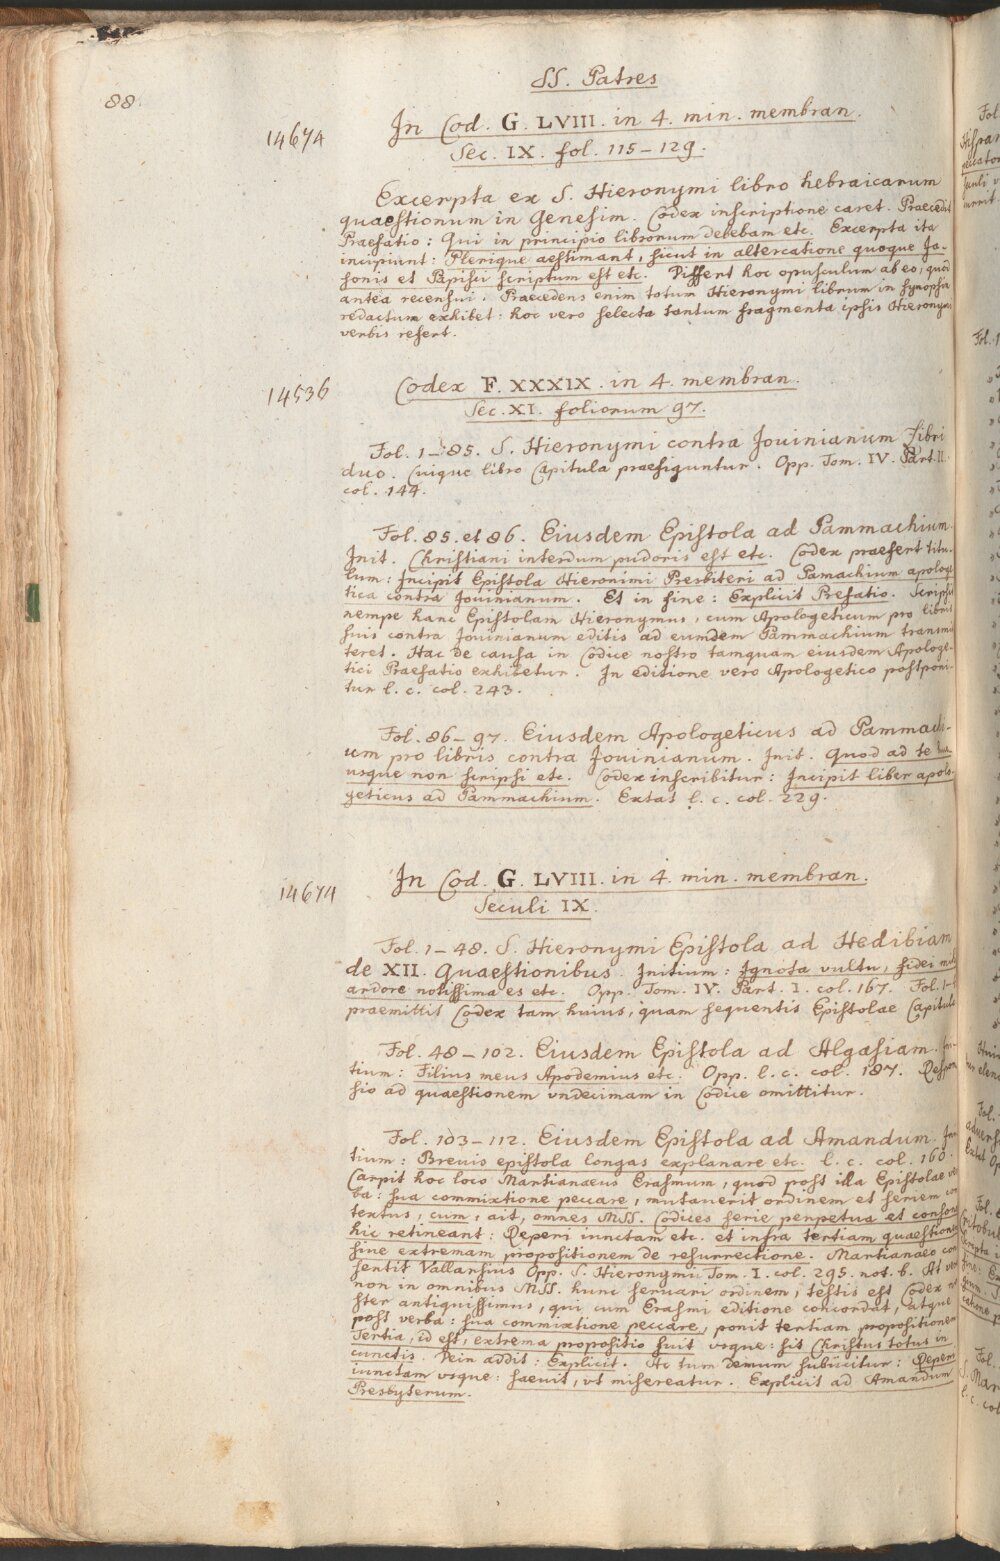 SS. Patres
88.
14674
In Cod. G. LVIII. in 4. min. membran.
Sec. IX. fol. 115-129.
Excerpta ex S. Hieronymi libro hebraicarum
quaestionum in Genesim. Codex inscriptione caret. Praecedit
Praefatio: Qui in principio librorum debebam etc. Excerpta ita
incipiunt: Plerique aestimant, sicut in altercatione quoque Ja-
sonis et Papisci scriptum est etc. Differt hoc opusculum ab eo, quod
antea recensui. Praecedens enim totum Hieronymi librum in synopsin
redactum exhibet: hoc vero selecta tantum fragmenta ipsis Hieronymi
verbis refert.
14536
Codex F. XXXIX. in 4. membran.
Sec. XI. foliorum 97.
Fol. 1-85. S. Hieronymi contra Jouinianum Libri
duo. Cuique libro Capitula praefiguntur. Opp. Tom. IV. Part. II.
col. 144.
Fol. 85. et 86. Eiusdem Epistola ad Pammachium.
Init. Christiani interdum pudoris est etc. Codex praefert titu-
lum: Incipit Epistola Hieronimi Presbiteri ad Pamachium apologe
tica contra Jouinianum. Et in fine: Explicit Prefatio. Scripsit
nempe hanc Epistolam Hieronymus, cum Apologeticum pro libris
suis contra Jouinianum editis ad eumdem Pammachium transmit
teret. Hac de causa in Codice nostro tamquam eiusdem Apologe-
tici Praefatio exhibetur. In editione vero Apologetico postponi-
tur l. c. col. 243.
Fol. 86-97. Eiusdem Apologeticus ad Pammachi-
um pro libris contra Jouinianum. Init. Quod ad te huc
usque non scripsi etc. Codex inscribitur: Incipit liber apolo-
geticus ad Pammachium. Extat l. c. col. 229.
14674
In Cod. G. LVIII. in 4. min. membran.
Seculi IX.
Fol. 1-48. S. Hieronymi Epistola ad Hedibiam
de XII. Quaestionibus. Initium: Ignota vultu, fidei mihi
ardore notissima es etc. Opp. Tom. IV. Part. I. col. 167. Fol. 1
praemittit Codex tam huius, quam sequentis Epistolae Capitula
Fol. 48-102. Eiusdem Epistola ad Algasiam. Ini-
tium: Filius meus Apodemius etc. Opp. l. c. col. 187. Respon
sio ad quaestionem vndecimam in Codice omittitur.
Fol. 103-112. Eiusdem Epistola ad Amandum. Ini
tium: Breuis epistola longas explanare etc. l. c. col. 160.
Carpit hoc loco Martianaeus Erasmum, quod post illa Epistolae ver
ba: sua commixtione peccare, mutauerit ordinem et seriem con
textus, cum, ait, omnes MSS. Codices serie perpetua et consona
hic retineant: Reperi iunctam etc. et infra tertiam quaestionem
sine extremam propositionem de resurrectione. Martianaeo con
sentit Vallarsius Opp. S. Hieronymi Tom. I. col. 295. not. b. At vero
non in omnibus MSS. hunc seruari ordinem, testis est Codex no
ster antiquissimus, qui cum Erasmi editione concordat, atque
post verba: sua commixtione peccare, ponit tertiam propositionem
Tertia, id est, extrema propositio fuit vsque: sit Christus totus in
cunctis. Dein addit: Explicit. Ac tum demum subiicitur: Reperi
iunctam vsque: saeuit, vt misereatur. Explicit ad Amandum
Presbyterum.